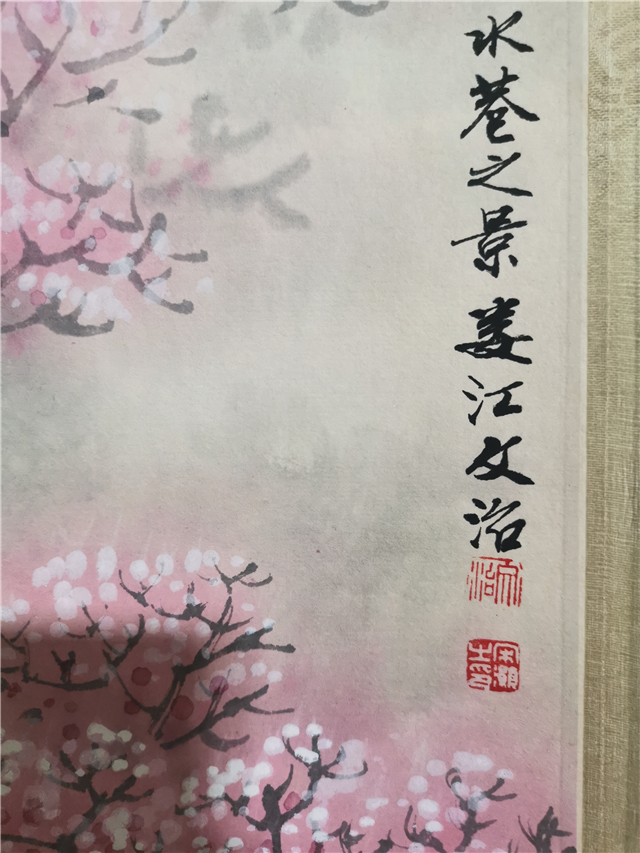 水巷之景娄江文治